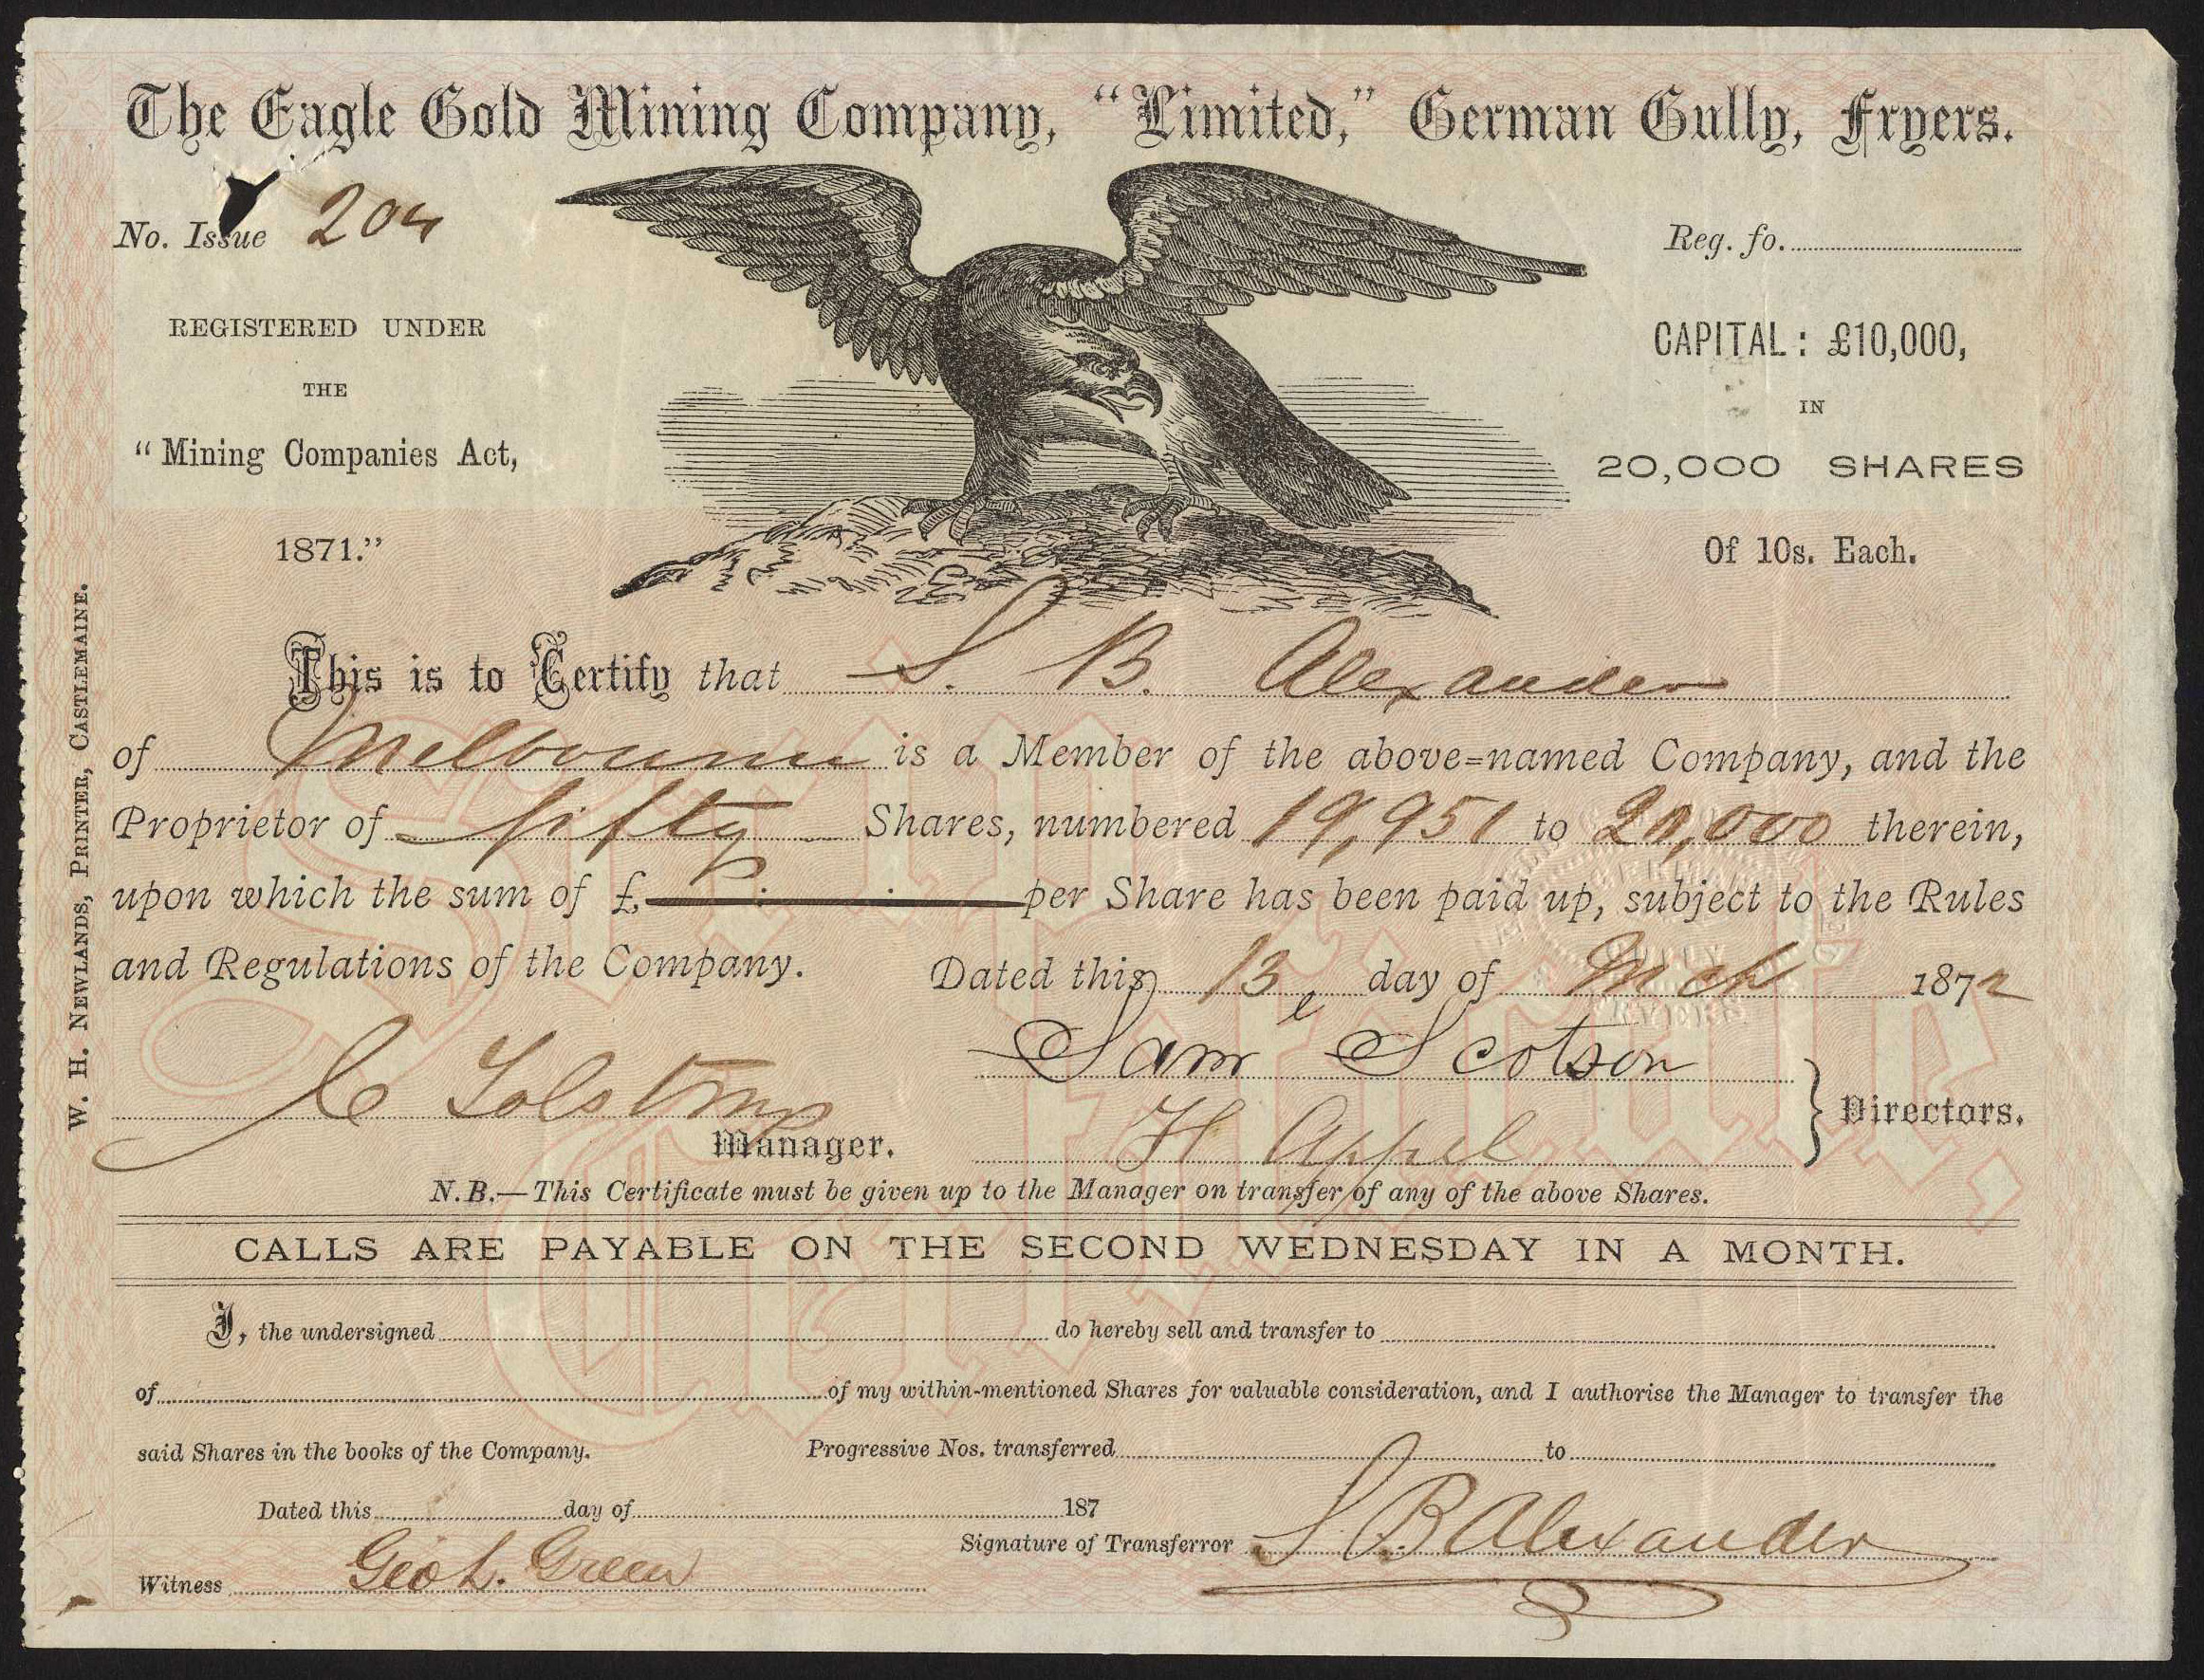 The Eagle Gold Mining Company, "Limited," German Gully, Fryers.
No. Issue 204
Reg. fo.
REGISTERED UNDER
THE
"Mining Companies Act,
1871."
CAPITAL: £10,000,
IN
20,000 SHARES
Of 10s. Each.
This is to Certify that S. B. Alexander
of Melbourne is a Member of the above-named Company, and the
Proprietor of fifty Shares, numbered 19,951 to 20,000 therein,
upon which the sum of £ per Share has been paid up, subject to the Rules
and Regulations of the Company. Dated this 13 day of Mch 1872
Sam Scotson
C Tolstrup
Manager.
H Appel
Directors.
N.B.—This Certificate must be given up to the Manager on transfer of any of the above Shares.
CALLS ARE PAYABLE ON THE SECOND WEDNESDAY IN A MONTH.
I, the undersigned do hereby sell and transfer to
of of my within-mentioned Shares for valuable consideration, and I authorise the Manager to transfer the
said Shares in the books of the Company. Progressive Nos. transferred to
Dated this day of 187
Signature of Transferror S B Alexander
Witness Geo L. Green
W. H. NEWLANDS, PRINTER, CASTLEMAINE.
Scrip
Certificate.